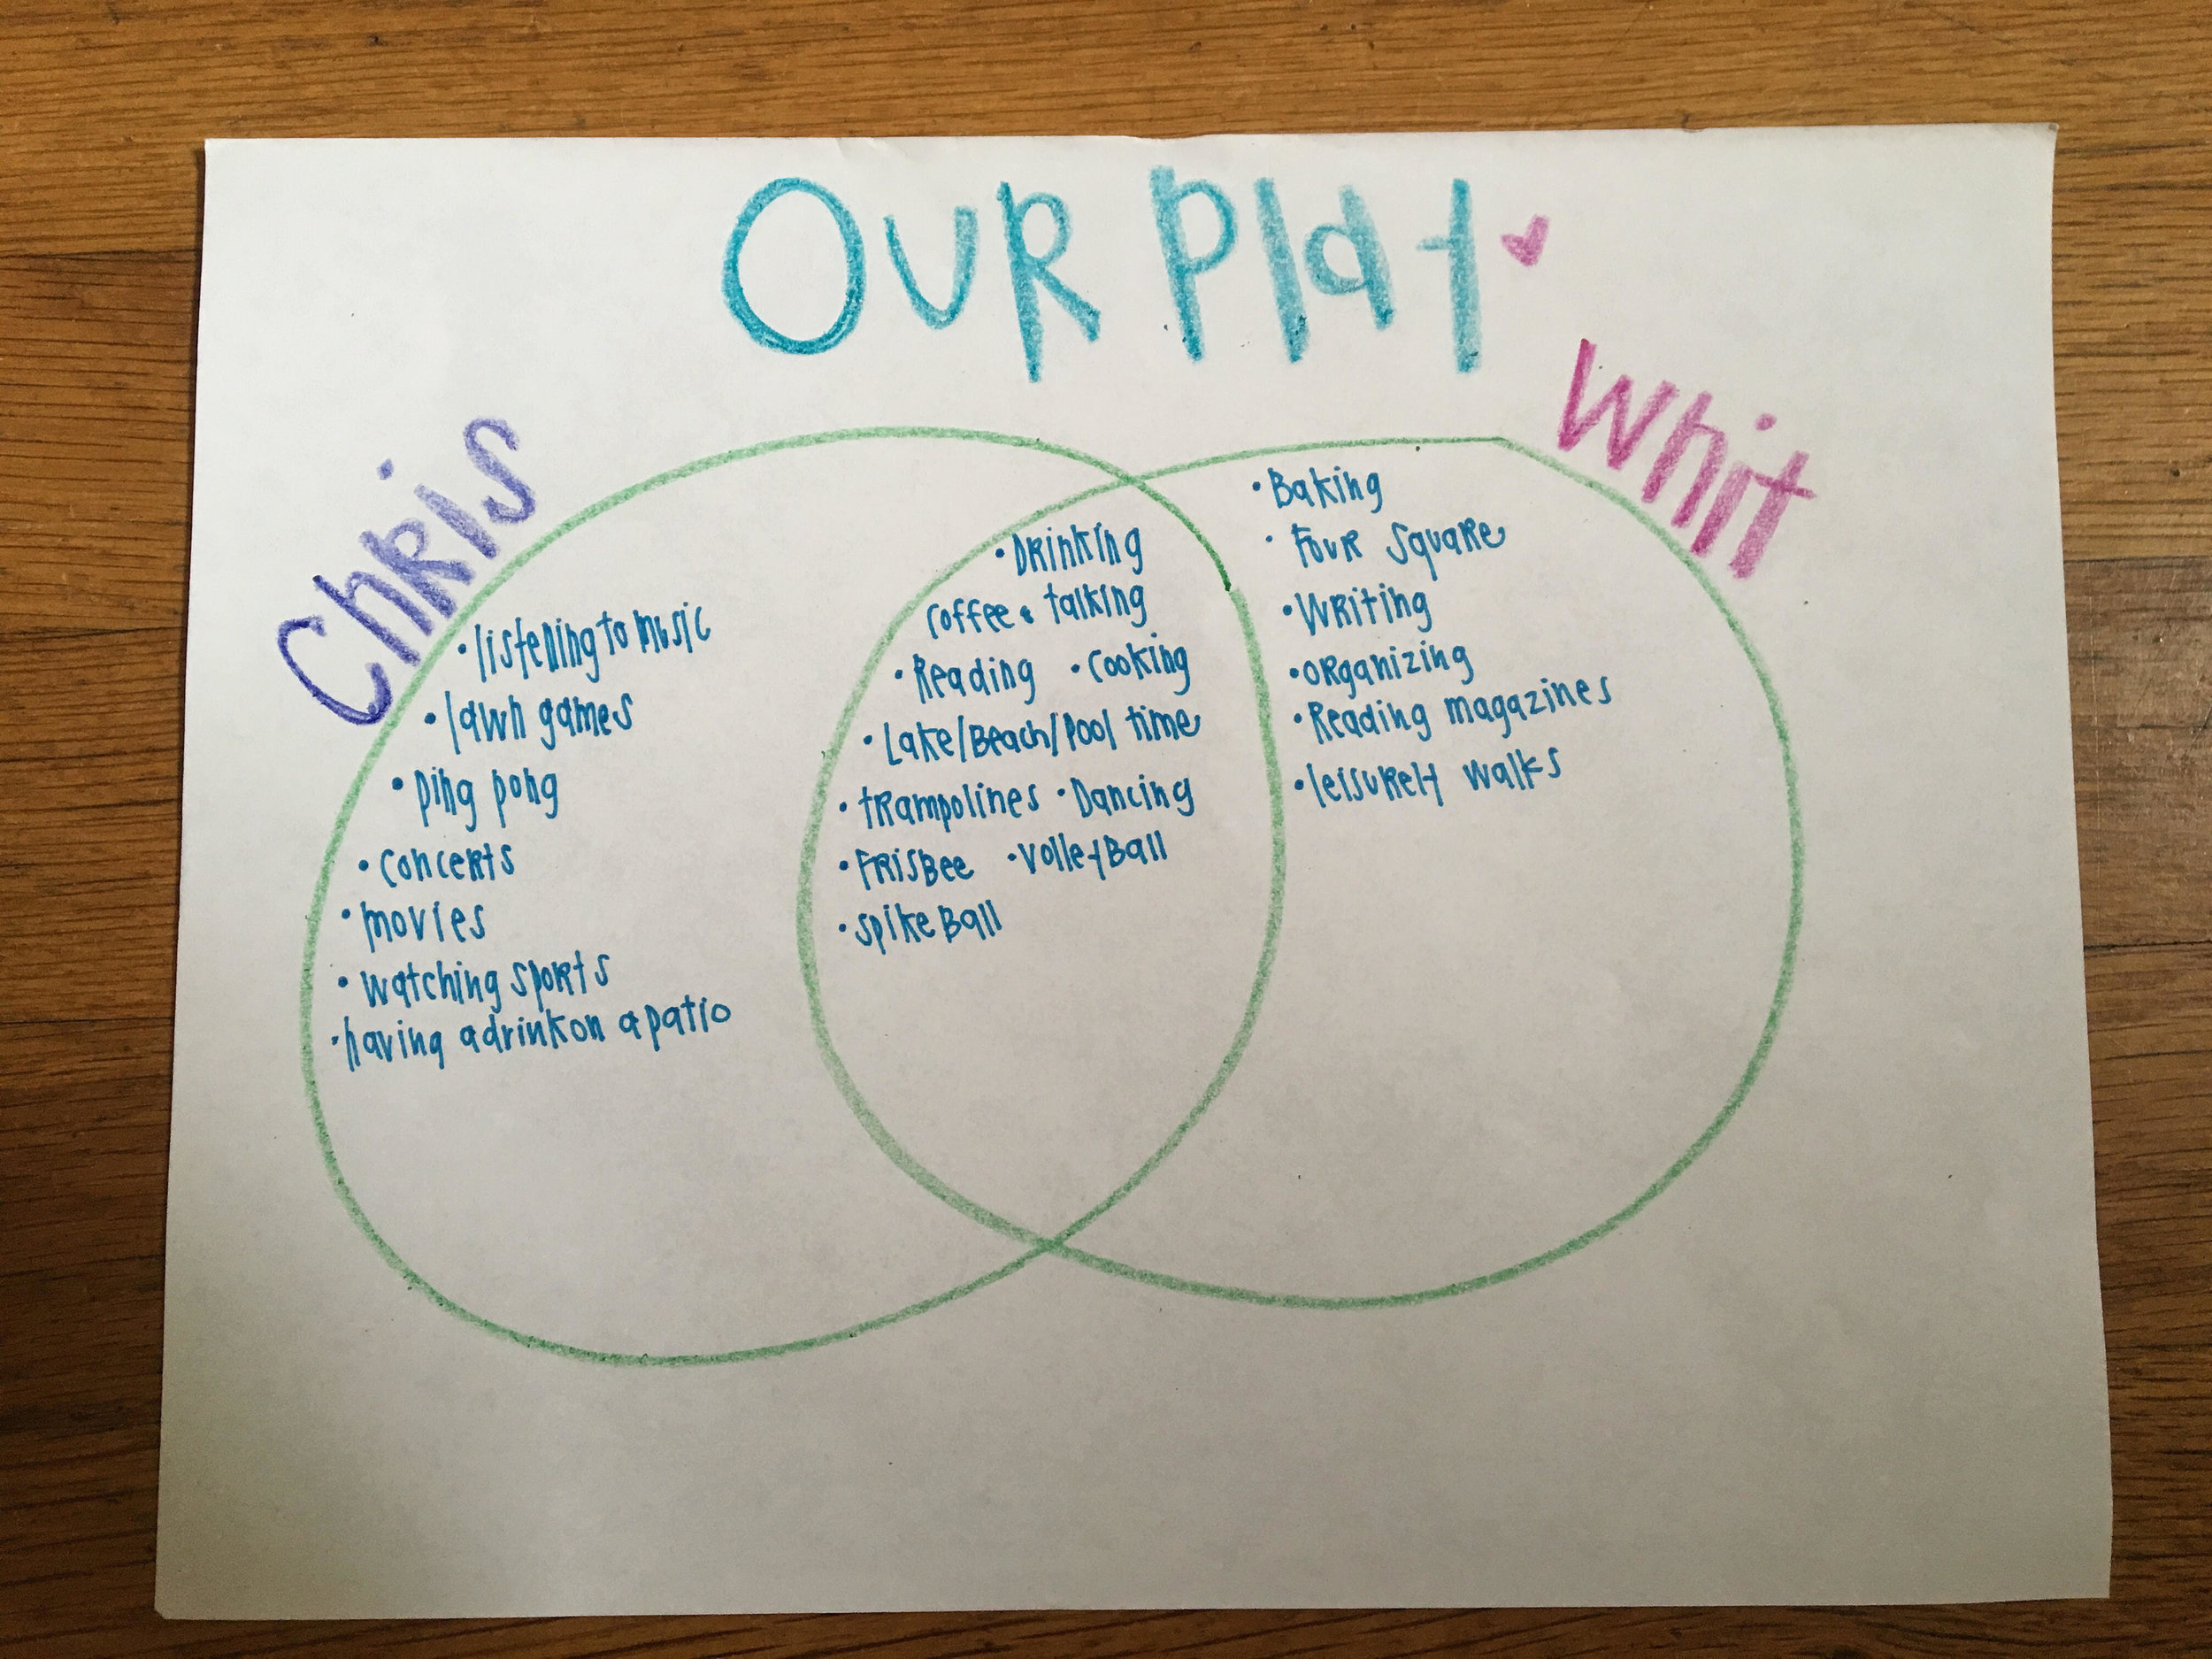 OUR Play
Chris
Whit
• listening to music
• lawn games
• ping pong
• concerts
• movies
• watching sports
• having a drink on a patio
• Drinking
coffee & talking
• Reading • Cooking
• Lake/Beach/Pool time
• trampolines • Dancing
• Frisbee • VolleyBall
• spikeBall
• Baking
• Four Square
• Writing
• organizing
• Reading magazines
• leisurely walks